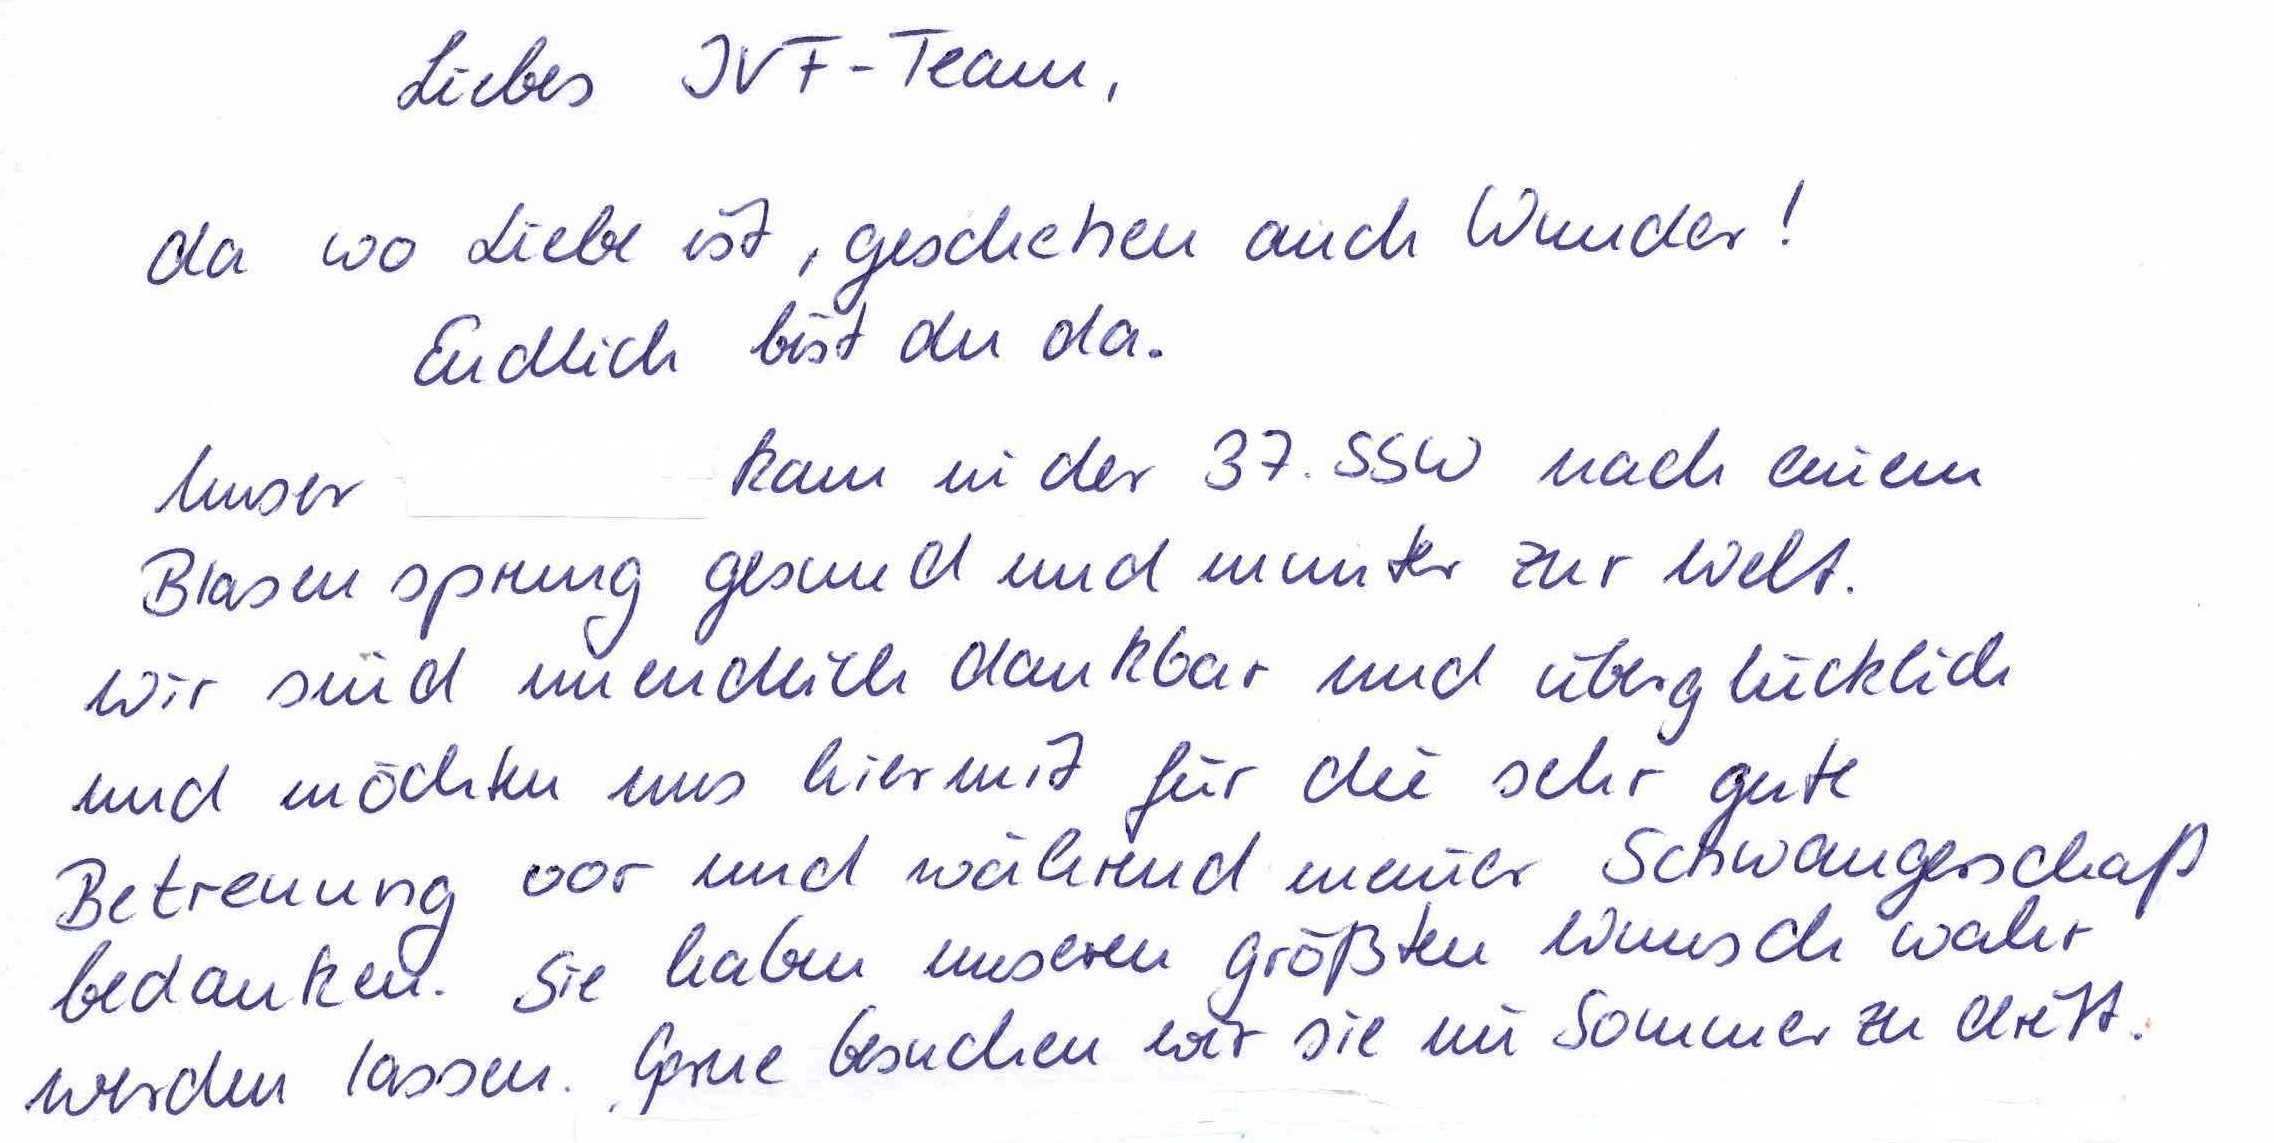 Liebes IVF-Team,
da wo Liebe ist, geschehen auch Wunder!
Endlich bist du da.
Unser kam in der 37. SSW nach einem
Blasensprung gesund und munter zur Welt.
Wir sind unendlich dankbar und überglücklich
und möchten uns hiermit für die sehr gute
Betreuung vor und während meiner Schwangerschaft
bedanken. Sie haben unseren größten Wunsch wahr
werden lassen. Gerne besuchen wir sie im Sommer zu dritt.